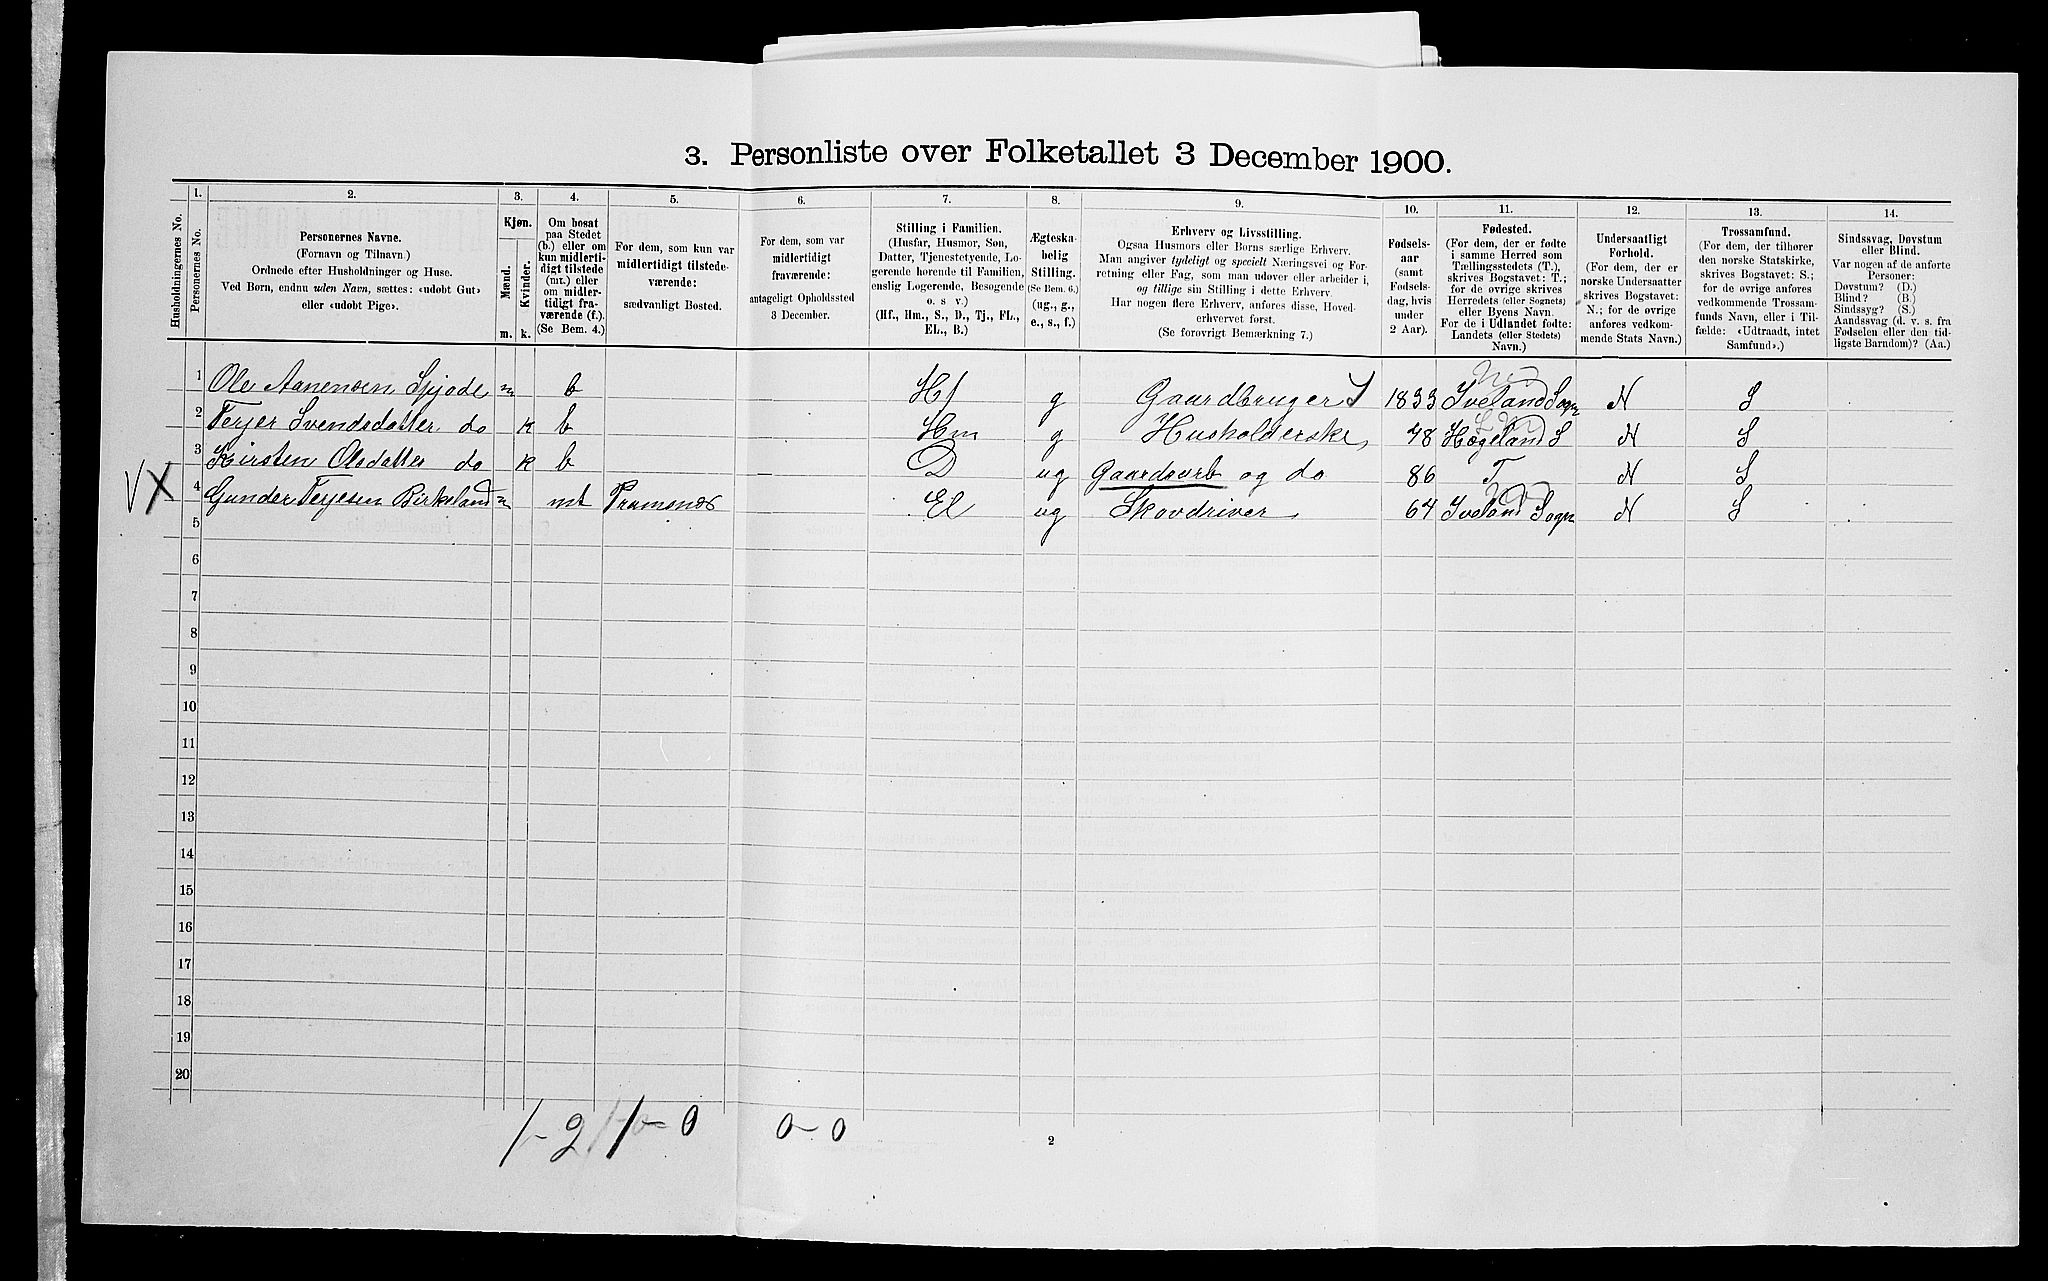 3. Personliste over Folketallet 3 December 1900.
Husholdningernes No.
1.
Personernes No.
2.
Personernes Navne.
(Fornavn og Tilnavn.)
Ordnede efter Husholdninger og Huse.
Ved Børn, endnu uden Navn, sættes: «udobt Gut»
eller «udobt Pige».
3.
Kjøn.
Mænd.
Kvinder.
m. k.
4.
Om bosat
paa Stedet
(b.) eller om
kun midlerti-
digt tilstede
(mt.) eller
om midler-
tidigt fra-
værende (f.).
(Se Bem. 4.)
5.
For dem, som kun var
midlertidigt tilstede-
værende:
sædvanligt Bosted.
6.
For dem, som var
midlertidigt
fraværende:
antageligt Opholdssted
3 December.
7.
Stilling i Familien.
(Husfar, Husmor, Søn,
Datter, Tjenestetyende, Lo-
gerende hørende til Familien,
enslig Logerende, Besøgende
o. s v.)
(Hf., Hm., S., D., Tj., FL.,
EL., B.)
8.
Ægteska-
belig
Stilling.
(Se Bem. 6.)
(ug., g.,
e., s., f.)
9.
Erhverv og Livsstilling.
Ogsaa Husmors eller Børns særlige Erhverv.
Man angiver tydeligt og specielt Næringsvei og For-
retning eller Fag, som man udøver eller arbeider i,
og tillige sin Stilling i dette Erhverv.
Har nogen flere Erhverv, anføres disse, Hoved-
erhvervet først.
(Se forøvrigt Bemærkning 7.)
10.
Fødsels-
aar
(samt
Fødsels-
dag, hvis
under
2 Aar).
11.
Fødested.
(For dem, der er fødte
i samme Herred som
Tællingsstedets (T.),
skrives Bogstavet: T.;
for de øvrige skrives
Herredets (eller Sognets)
eller Byens Navn.
For de i Udlandet fødte:
Landets (eller Stedets)
Navn.)
12.
Undersaatligt
Forhold.
(For dem, der er
norske Undersaatter
skrives Bogstavet:
N.; for de øvrige
anføres vedkom-
mende Stats Navn.)
13.
Trossamfund.
(For dem, der tilhører
den norske Statskirke,
skrives Bogstavet: S.;
for de øvrige anføres
vedkommende Trossam-
funds Navn, eller i Til-
fælde: «Udtraadt, intet
Samfund».)
14.
Sindssvag, Døvstum
eller Blind.
Var nogen af de anførte
Personer:
Døvstum? (D.)
Blind? (B.)
Sindssyg? (S.)
Aandssvag (d. v. s. fra
Fødselen eller den tid-
ligste Barndom)? (Aa.)
1 Ole Aanensen m b Hf g Gaardbruger S 1833 Iveland Sogn N S
2 Terjer Svendsdatter do k b Hm g Husholderske 48 Hægeland S N S
3 Kirsten Olsdatter do k b D ug Gaardsarb og do 86 T N S
VX 4 Gunder Terjesen Birkeland m mt El ug Skovdriver 64 Iveland Sogn N S
5
6
7
8
9
10
11
12
13
14
15
16
17
18
19
20
1-2 1-0 0-0
2